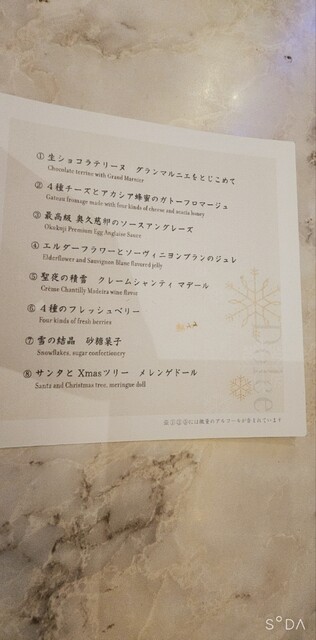 ① 生ショコラテリーヌ グランマルニエをとじこめて
Chocolate terrine with Grand Marnier
② 4種チーズとアカシア蜂蜜のガトーフロマージュ
Gateau fromage made with four kinds of cheese and acacia honey
③ 最高級 奥久慈卵のソースアングレーズ
Okukuji Premium Egg Anglaise Sauce
④ エルダーフラワーとソーヴィニヨンブランのジュレ
Elderflower and Sauvignon Blanc flavored jelly
⑤ 聖夜の積雪 クレームシャンティ マデール
Crème Chantilly Madeira wine flavor
⑥ 4種のフレッシュベリー
Four kinds of fresh berries
⑦ 雪の結晶 砂糖菓子
Snowflakes, sugar confectionery
⑧ サンタと Xmasツリー メレンゲドール
Santa and Christmas tree, meringue doll
には微量のアルコールが含まれています
SODA